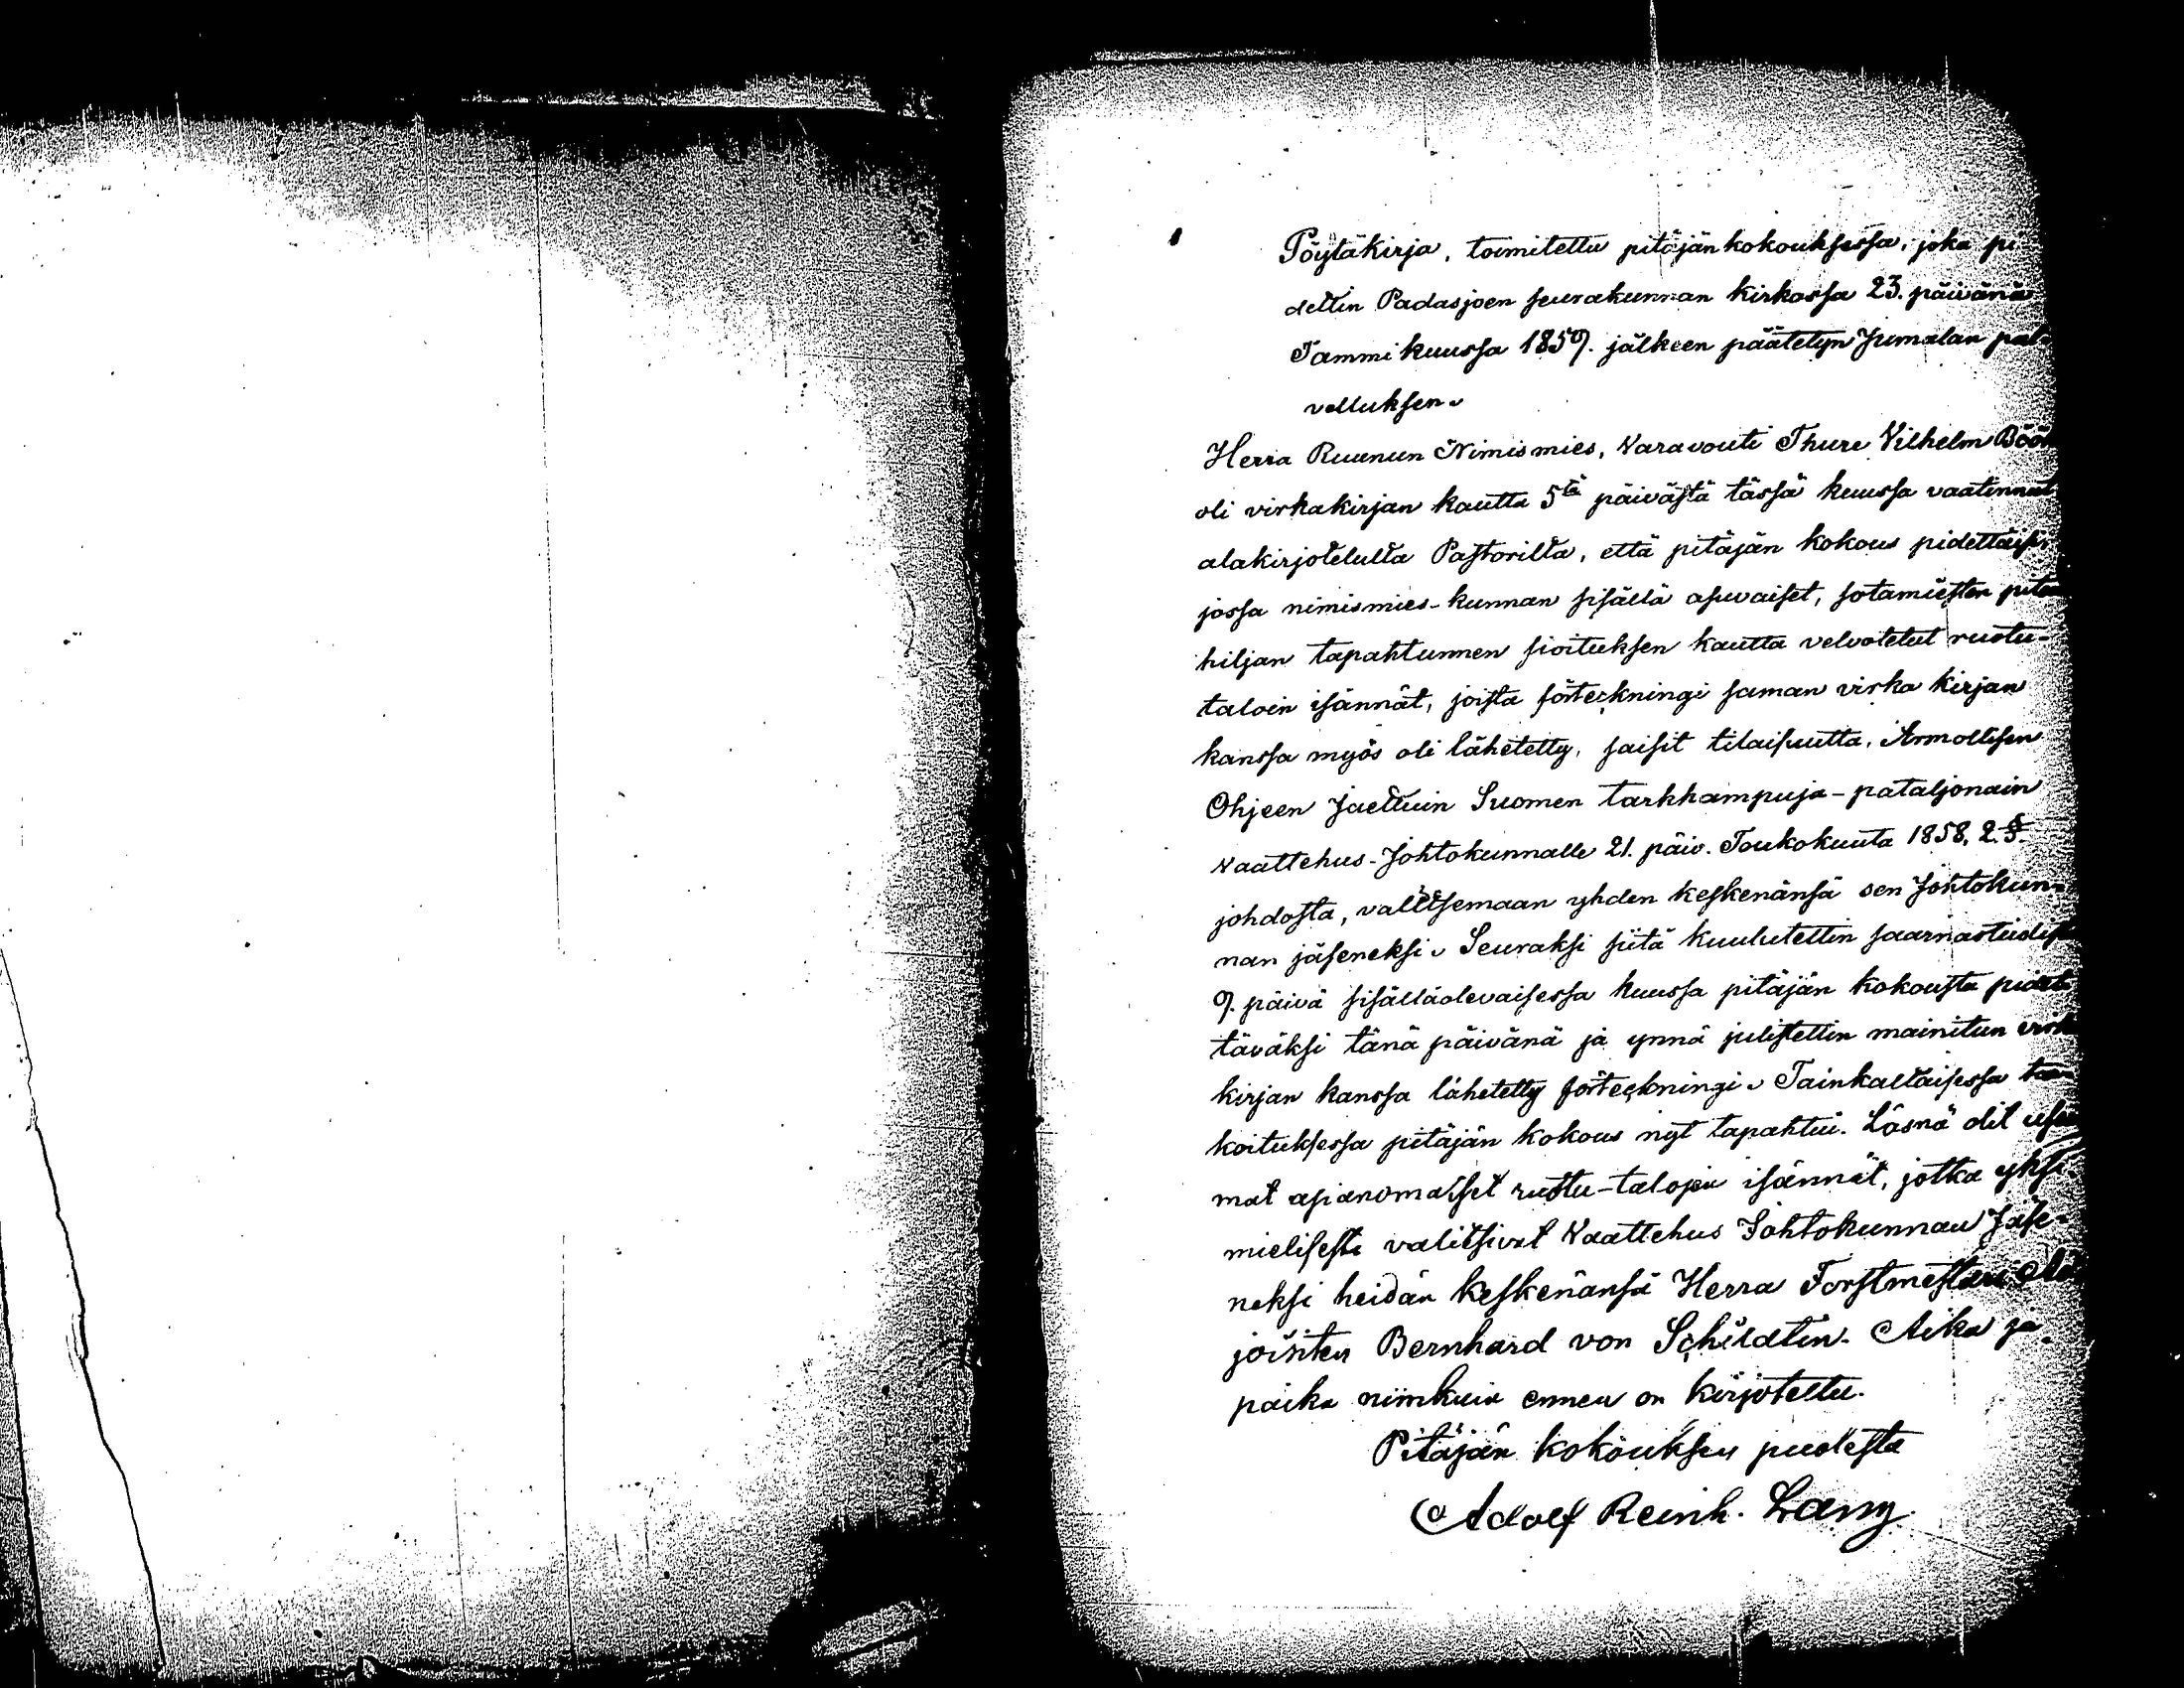 Pöytäkirja, toimitettu pitäjänkokouksessa, joka pi
dettin Padasjoen seurakunnan kirkossa 23. päivänä
Tammikuussa 1859. jälkeen päätetyn Jumalan pal-
velluksen.
Herra Ruunun Nimismies, Varavouti Thure Vilhelm Böök
oli virkakirjan kautta 5tä päivästä tässä kuussa vaatinnut
alakirjotetulta Pastorilta, että pitäjän kokous pidettäisi,
jossa nimismies-kunnan sisällä asuvaiset, sotamiesten
hiljan tapahtunnen sioituksen kautta velvotetut ruotu-
taloin isännät, joista förteckningi saman virka kirjan
kanssa myös oli lähetetty, saisit tilaisuutta, Armollisen
Ohjeen Jaettuin Suomen tarkkampuja-pataljonain
Vaattehus-Johtokunnalle 21. päiv. Toukokuuta 1858, 2. §.
johdosta, valitsemaan yhden keskenänsä sen Johtokun-
nan jäseneksi. Seuraksi siitä kuulutettin saarnastuolista
9. päivä sisälläolevaisessa kuussa pitäjän kokousta pidet-
täväksi tänä päivänä ja ynnä julistettin mainitun virka
kirjan kanssa lähetetty förteckningi. Tainkaltaisessa tar-
koituksessa pitäjän kokous nyt tapahtui. Läsnä olit usia
mat asianomaiset ruotu-taloin isännät, jotka yksi-
mielisesti valitsivat Vaattehus Johtokunnan Jäse-
neksi heidän keskenänsä Herra Forstmestari
joisten Bernhard von Schildtin. Aika ja
paika niinkuin ennen on kirjotettu.
Pitäjän kokouksen puolesta
Adolf Reinh. Lang